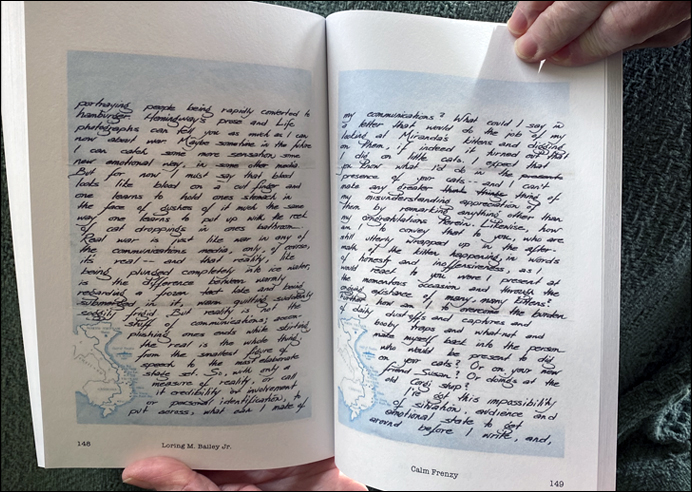 portraying people being rapidly converted to
hamburger. Hemingway's prose and Life
photographs can tell you as much as I can
now about war. Maybe sometime in the future
I can catch some more sensation, some
new emotional way in some other media.
But for now I must say that blood
looks like blood on a cut finger and
one learns to hold ones stomach in
the face of gashes of it much the same
way one learns to put up with the reek
of cat droppings in ones bathroom.
Real war is just like war in any of
the communications media, only, of course,
its real — and that reality, like
being plunged completely into ice water,
is the difference between warmly
from and being
submerged in it, warm quilting suddenly
frigid. But reality is not the
stuff of communications; accom-
plishing ones ends while skirting
the real is the whole thing,
from the smallest figure of
speech to the most elaborate
stage set. So, with only a
measure of reality, or call
it credibility or involvement
or personal identification, to
put across, what can I make of
148
Loring M. Bailey Jr.
my communications? What could I say in
a letter that would do the job of my
looking at Miranda's kittens and digging
on them, if indeed it turned out that
I dig on little cats. I expect that
you know what I'd do in the
presence of your cats and I can't
make any greater thing of
my misunderstanding appreciation of
them by remarking anything other than
my congratulations herein. Likewise, how
am I to convey to you, who are
still utterly wrapped up in the after-
math of the kitten happening, in words
of honesty and inoffensiveness, as I
would react to you were I present at
the momentous occasion and through the
existence of many, many kittens?
Further how are we to overcome the burden
of daily dust offs and captures and
booby traps and what-not and
make myself back into the person
who would be present to dig
on your cats? Or on your new
friend Susan? Or doings at the
old Corgi shop?
I've got this impossibility
of situation, audience and
emotional state to get
around before I write, and,
Calm Frenzy
149